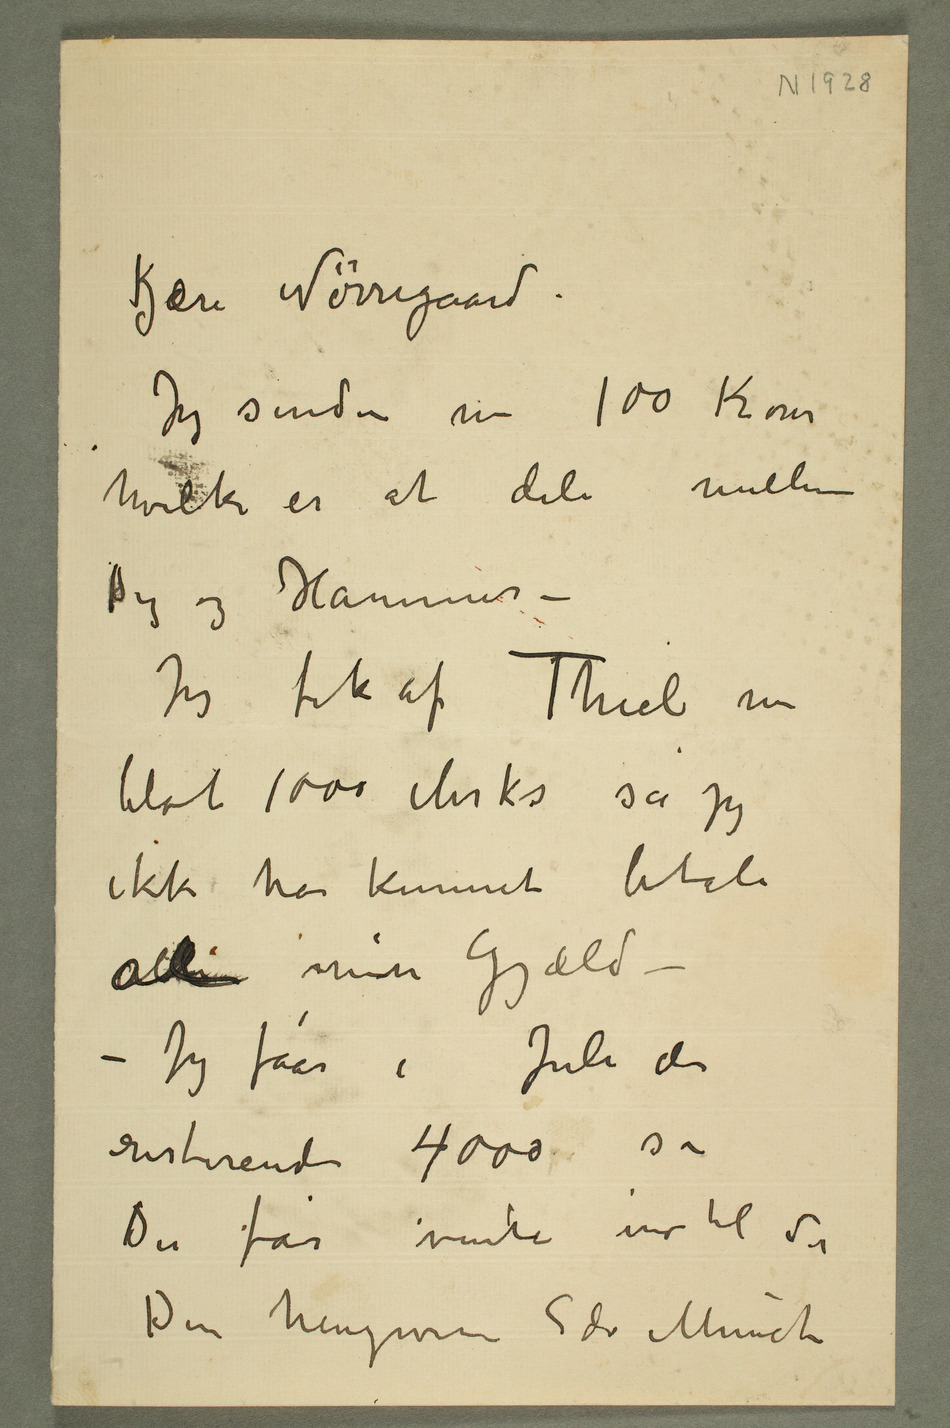 N 1928
Kjære Nörregaard.
Jeg sender nu 100 Kroner
hvilke er at dele mellem
Dig og Hammer –
Jeg fik af Thiel nu
blot 1000 Mrks så jeg
ikke har kunnet betale
alle min Gjæld –
– Jeg fåar i Juli de
resterende 4000 så
Du får vente ind til der
Din hengivne Edv Munch